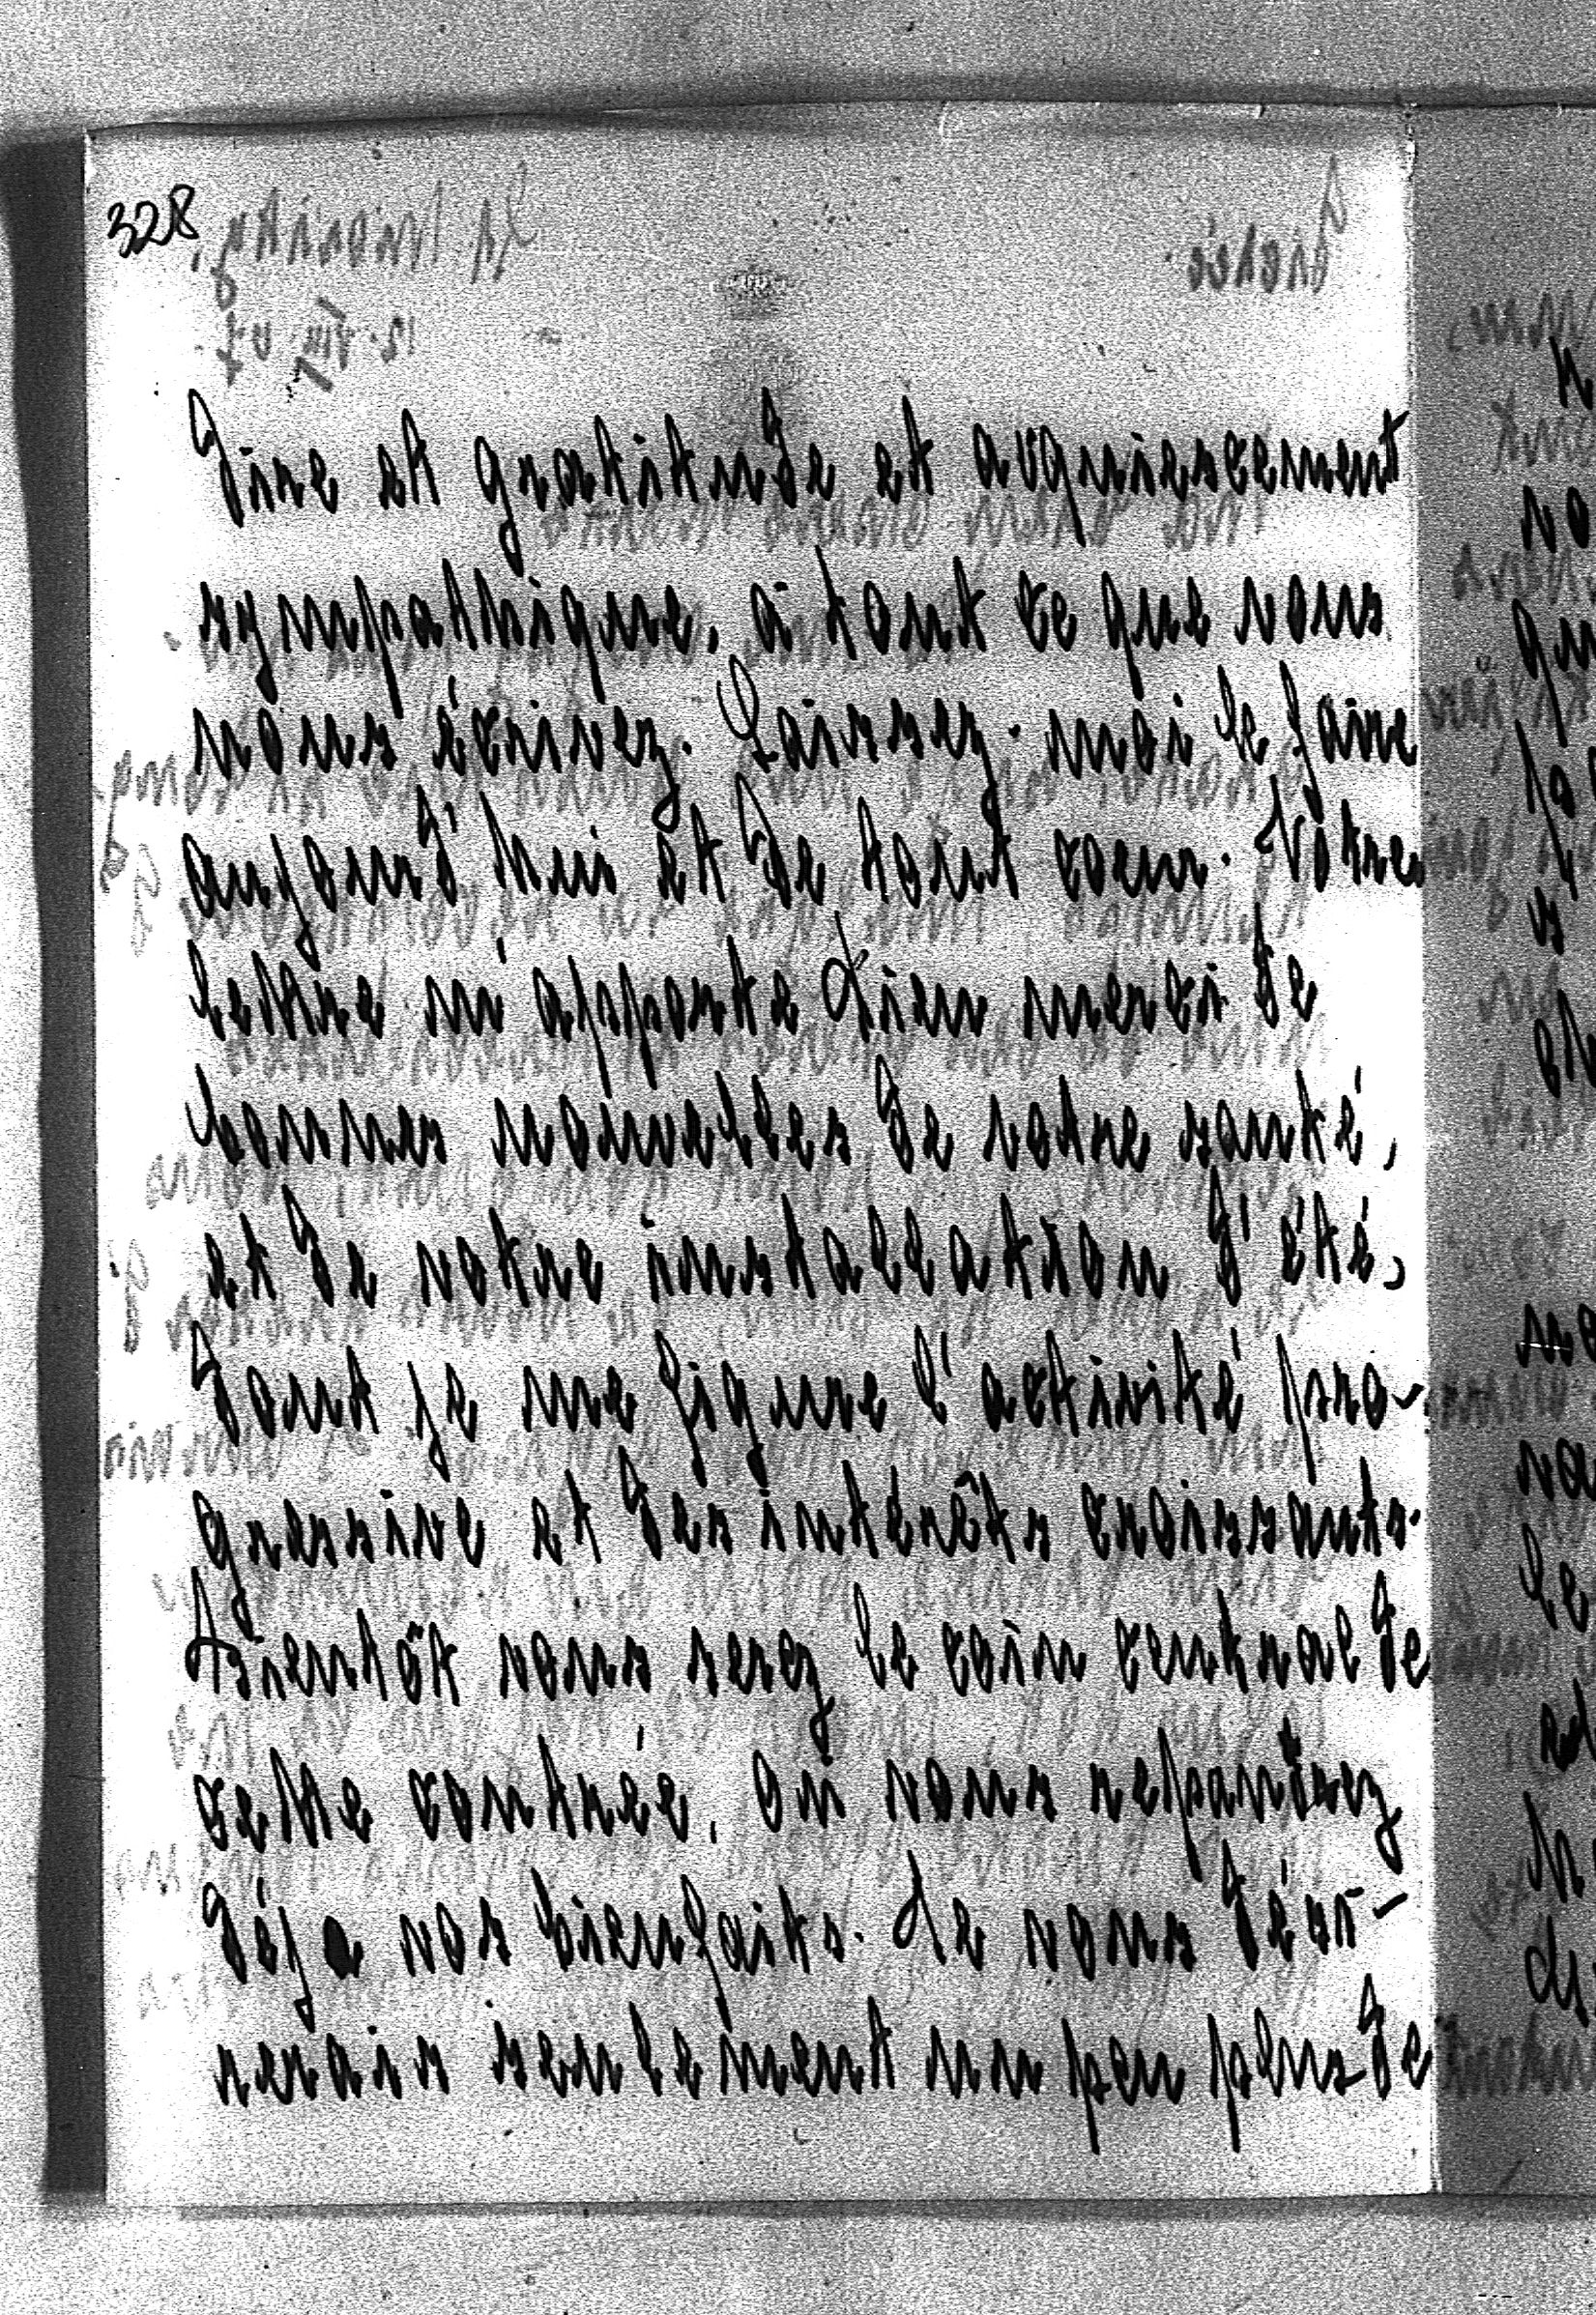 328
dire et gratitude et acquiescement
sympathique, à tout ce que vous
nous écrivez. Laissez-moi le faire
aujourd'hui et de tout coeur. Votre
lettre m'apporte Dieu merci de
bonnes nouvelles de votre santé,
et de votre installation d'été,
dont je me figure l'activité pro-
gressive et des intérêts croissants.
Bientôt vous serez le coin central de
cette contrée, où vous répandez
déja vos bienfaits. Je vous dési-
rerais seulement un peu plus de